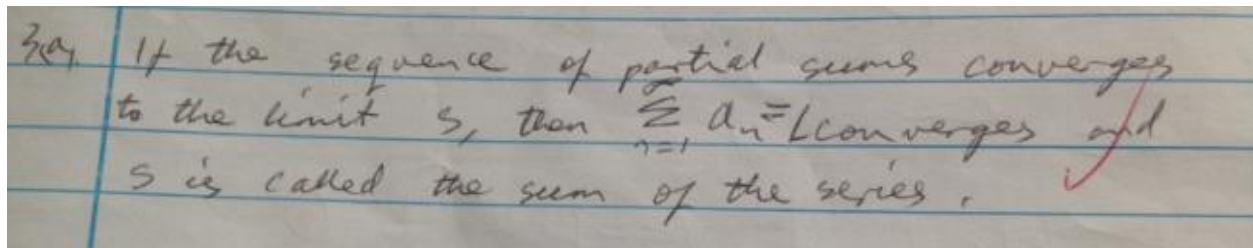 3.a, If the sequence of partial sums converges
to the limit s, then ∑_{n=1}^{∞} a_n = L converges and
s is called the sum of the series.